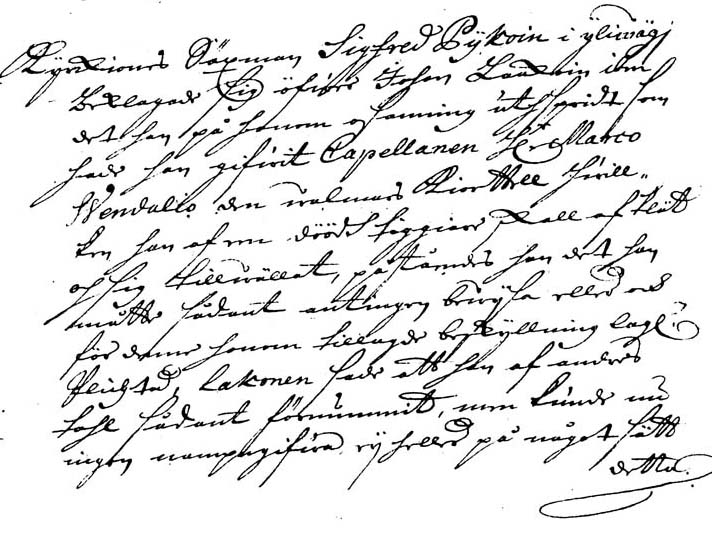 Kyrckiones Säxman Sigfred Pykoin i yliwägj
Beklagade sig öfwer Johan Laukoin
det han på honom osanning uthspridt som
hade han gifwit Capellanen Hr Marco
Wendalio den walmars Kiorttell hwill-
ken han af em döödh toggiare skall af klät
och sig tillwällat, påståendes han det han
måtte sådant antingen bewysa eller och
för denne honom tillagde beskyllning lagl:
Plichta, Lakonen sade att han af andras
tahl sådant förnummit, men kunde nu
ingen nampngifwa ey heller på något sätt
detta.